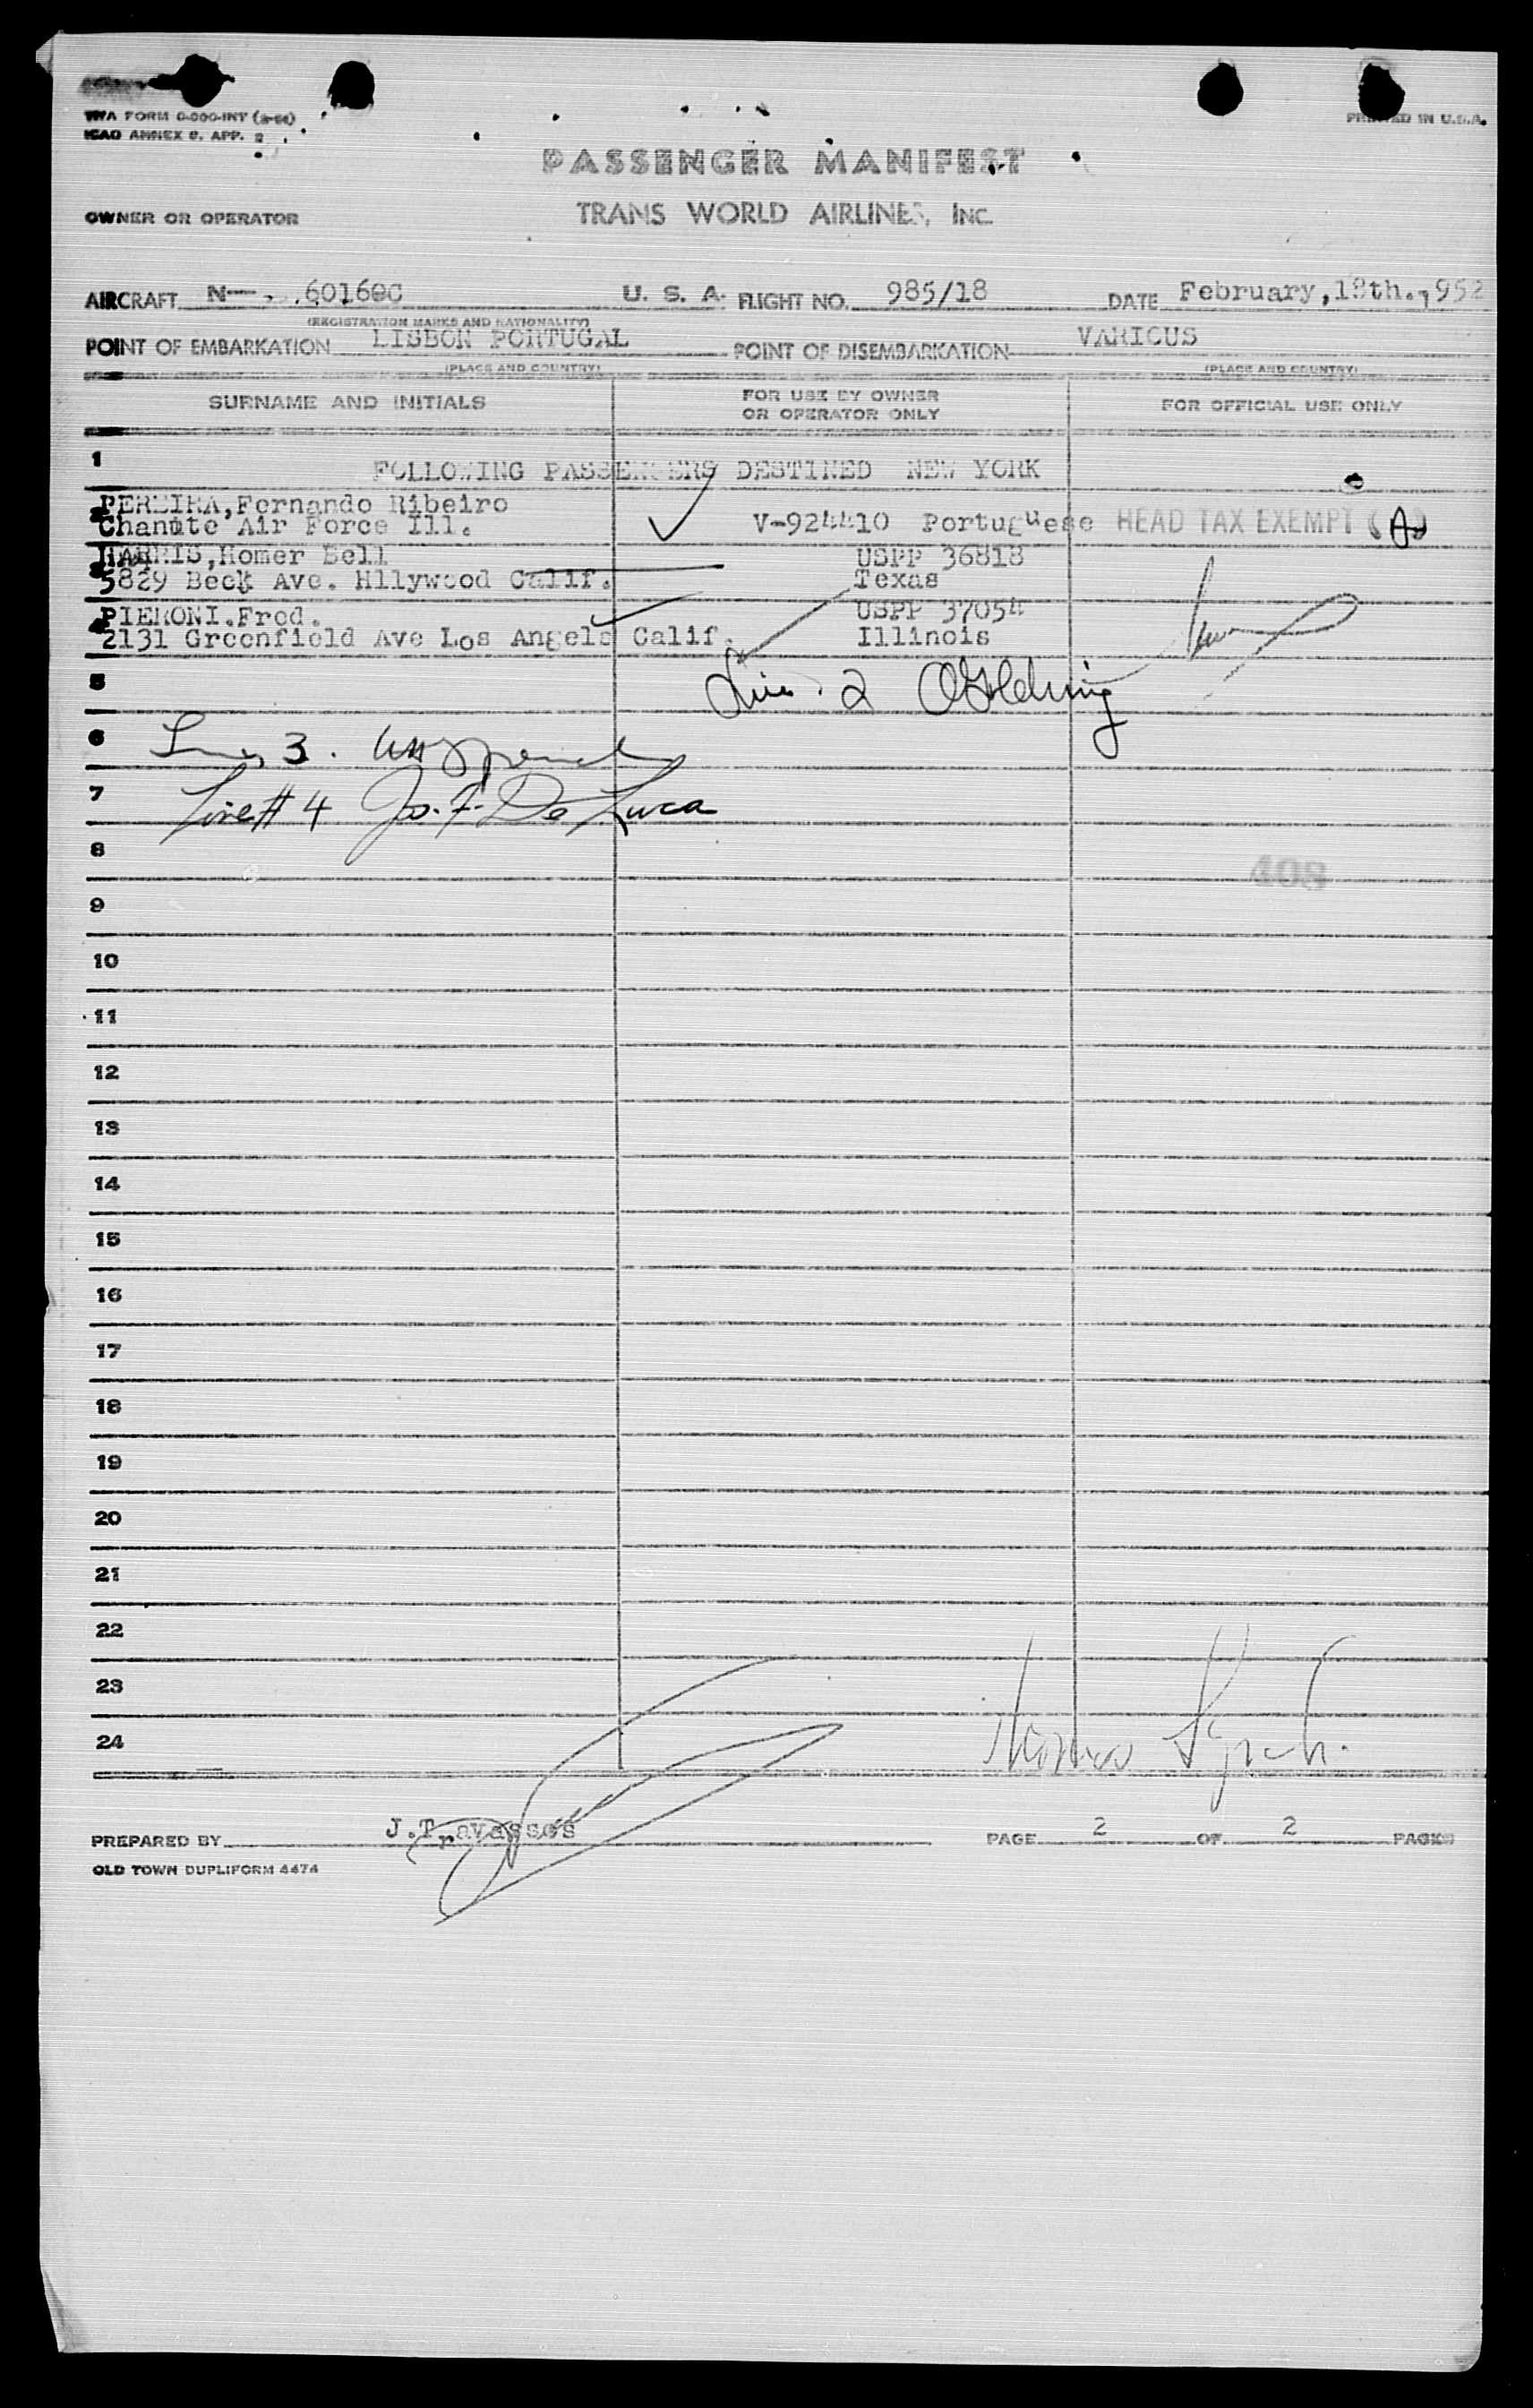 TWA FORM
ICAO ANNEX 9, APP. 2
PRINTED IN U.S.A.
PASSENGER MANIFEST
OWNER OR OPERATOR TRANS WORLD AIRLINES, INC.
AIRCRAFT N- U. S. A. FLIGHT NO. 985/18 DATE February,18th.,1952
(REGISTRATION MARKS AND NATIONALITY)
POINT OF EMBARKATION LISBON PORTUGAL POINT OF DISEMBARKATION VARIOUS
(PLACE AND COUNTRY) (PLACE AND COUNTRY)
SURNAME AND INITIALS FOR USE BY OWNER OR OPERATOR ONLY FOR OFFICIAL USE ONLY
1 FOLLOWING PASSENGERS DESTINED NEW YORK
2 PEREIRA,Fernando Ribeiro
Chanute Air Force Ill. V-924410 Portuguese HEAD TAX EXEMPT (A)
3 HARRIS,Homer Bell USPP 36818
5829 Beck Ave. Hllywood Calif. Texas
4 PIERONI.Fred. USPP 37054
2131 Greenfield Ave Los Angels Calif. Illinois
5 Line 2
6 Line 3.
7 Line # 4 Jo. F. De Luca
8
408
9
10
11
12
13
14
15
16
17
18
19
20
21
22
23
24 Thomas Lynch.
PREPARED BY J.Travassos PAGE 2 OF 2 PAGES
OLD TOWN DUPLIFORM 4474